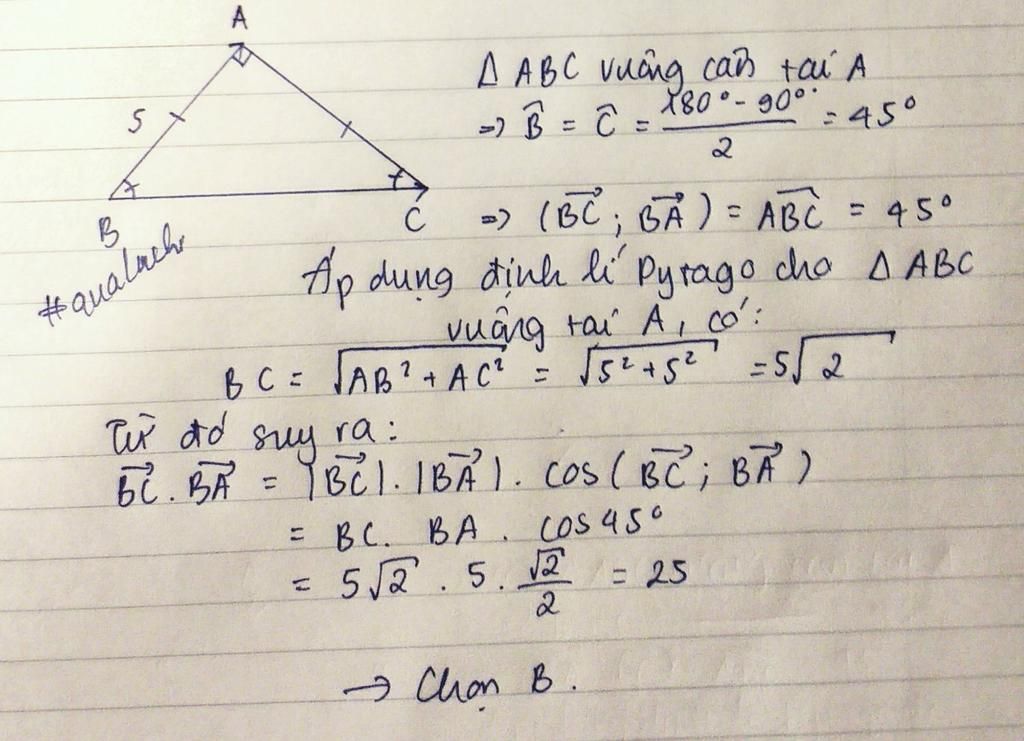 A
5
B
C
#qualach
Δ ABC vuông cân tại A
=> B̂ = Ĉ = (180° - 90°)/2 = 45°
=> (BC→; BA→) = ABC̑ = 45°
Áp dụng định lí Pytago cho Δ ABC
vuông tại A, có:
BC = √(AB² + AC²) = √(5² + 5²) = 5√2
Từ đó suy ra:
BC→ . BA→ = |BC→| . |BA→| . cos(BC→; BA→)
= BC . BA . cos45°
= 5√2 . 5 . √2/2 = 25
→ Chọn B.